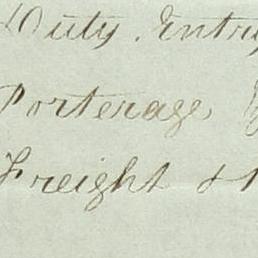 Duty. Entry
Porterage
Freight &